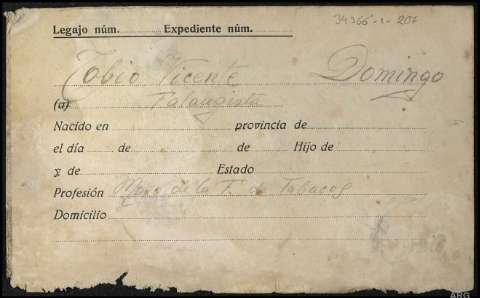 34366-1-207
Legajo núm. Expediente núm.
Tobio Vicente Domingo
(a) Falangista
Nacido en provincia de
el día de de Hijo de
y de Estado
Profesión Mozo de la F. de Tabacos
Domicilio
ARG